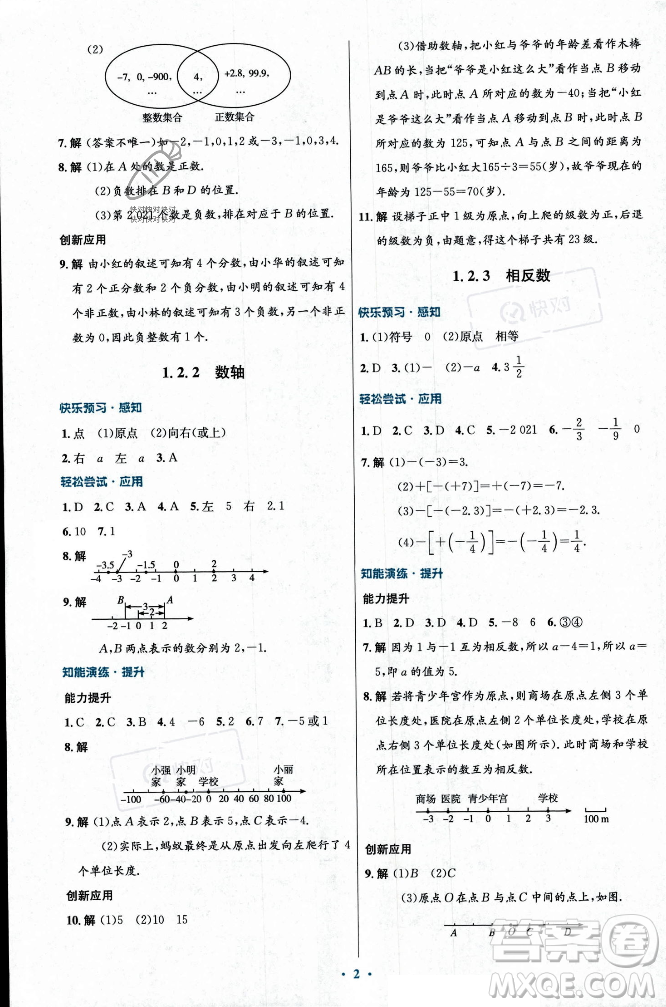 (2)
-7, 0, -900,
…
4,
…
+2.8, 99.9,
…
整数集合
正数集合
7.解 (答案不唯一)如-2,-1,0,1,2或-3,-1,0,1,3,4.
8.解 (1)在A处的数是正数.
(2)负数排在B和D的位置.
(3)第2 021个数是负数,排在对应于B的位置.
快对快对快对
快对快对快对
创新应用
9.解 由小红的叙述可知有4个分数,由小华的叙述可知
有2个正分数和2个负分数,由小明的叙述可知有4
个非正整数,由小林的叙述可知有3个非正整数和4
个非负整数,因此负整数有1个.
1.2.2 数轴
快乐预习·感知
1.点 (1)原点 (2)向右(或上)
2.右 a 左 a 3.A
轻松尝试·应用
1.D 2.C 3.A 4.C 5.左 5 右 2.1
6.10 7.1
8.解
-3
-3.5 -1.5 0 2
-4 -3 -2 -1 0 1 2 3 4
9.解
B 3 A
-2 -1 0 1 2
A,B两点表示的数分别为2,-1.
知能演练·提升
能力提升
1.C 2.C 3.B 4.-6 5.2 7.-5或1
8.解
小强家 小明家 学校 小丽家
-100 -60 -40 -20 0 20 40 60 80 100
9.解 (1)点A表示2,点B表示5,点C表示-4.
(2)实际上,蚂蚁最终是从原点出发向左爬行了4
个单位长度.
创新应用
10.解 (1)5 (2)10 15
(3)借助数轴,把小红与爷爷的年龄差看作木棒
AB的长,当把“爷爷是小红这么大”看作当B移动
到点A时,此时点A所对应的数为-40;当“小红
是爷爷这么大”看作当点A移动到点B时,此时点
B所对应的数为125,所以点A与点B之间的距离为
165,所以爷爷比小红大165÷3=55(岁),故爷爷现在的
年龄为125-55=70(岁).
11.解 设梯子正中1级为原点,向上爬的级数为正,后退
的级数为负,由题意,得这个梯子共有23级.
1.2.3 相反数
快对
快乐预习·感知
1.(1)符号 0 (2)原点 相等
2.D 3.(1)-a (2)-a 4.3 1/2
轻松尝试·应用
1.D 2.D 3.C 4.C 5.-2 021 6.-2/3 -1/9 0
7.解 (1)-(-3)=3.
(2)+[-(+7)]=-(+7)=-7.
(3)-[-(-2.3)]=-(+2.3)=-2.3.
(4)-[+(-1/4)]=-(-1/4)=1/4.
知能演练·提升
能力提升
1.B 2.C 3.D 4.D 5.-8 6 6.③④
7.解 因为1与-1互为相反数,所以a-4=1,所以a
=5,即a的值为5.
8.解 若将青少年宫作为原点,则商场在原点左侧3个单
位长度处,医院在原点左侧2个单位长度处,学校在原
点右侧3个单位长度处(如图所示).故商场和学校
所在位置表示的数互为相反数.
商场 医院 青少年宫 学校
-3 -2 -1 0 1 2 3 100 m
创新应用
9.解 (1)B (2)C
(3)原点O在点B与点C中间的点上,如图.
A B O C D
2
答案卷
MXQE.COM